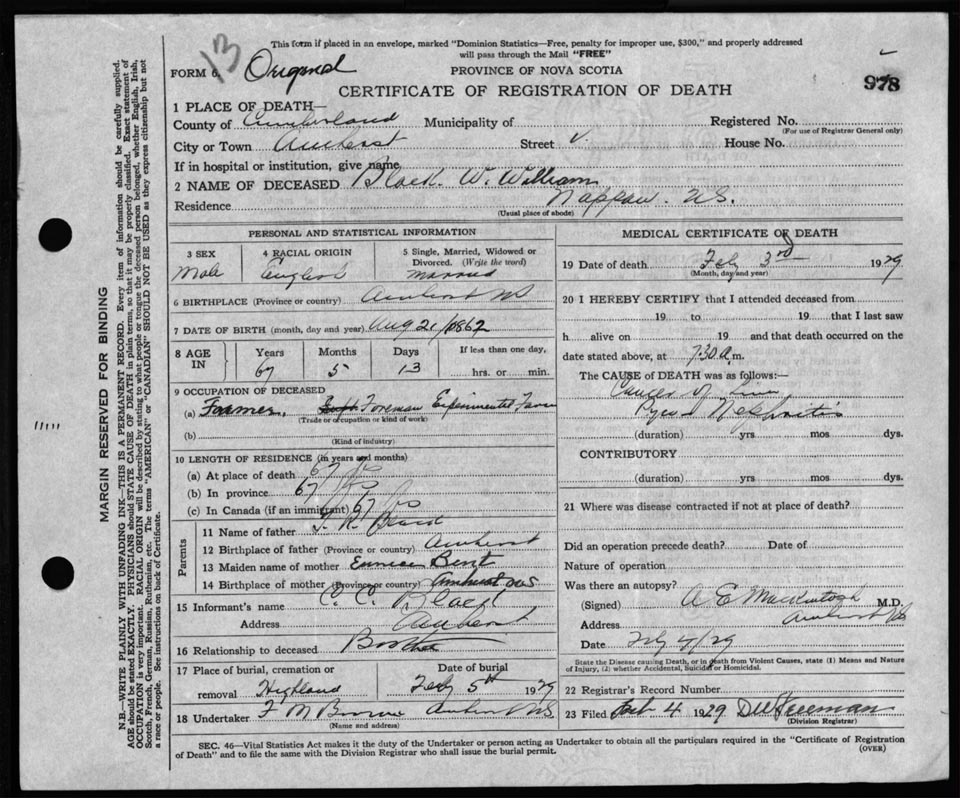 This form if placed in an envelope, marked "Dominion Statistics—Free, penalty for improper use, $300," and properly addressed
will pass through the Mail "FREE"
13
FORM 6. Original
PROVINCE OF NOVA SCOTIA
978
CERTIFICATE OF REGISTRATION OF DEATH
1 PLACE OF DEATH—
County of Cumberland Municipality of Registered No.
(For use of Registrar General only)
City or Town Amherst Street House No.
If in hospital or institution, give name
2 NAME OF DECEASED Black. W. William
Residence Nappan. N.S.
(Usual place of abode)
PERSONAL AND STATISTICAL INFORMATION
3 SEX 4 RACIAL ORIGIN 5 Single, Married, Widowed or
Divorced. (Write the word)
Male English married
6 BIRTHPLACE (Province or country) Amherst NS
7 DATE OF BIRTH (month, day and year) Aug 21/1862
8 AGE IN Years Months Days If less than one day,
67 5 13 hrs. or min.
9 OCCUPATION OF DECEASED
(a) Farmer, Foreman Experimental Farm
(Trade or occupation or kind of work)
(b)
(Kind of industry)
10 LENGTH OF RESIDENCE (in years and months)
(a) At place of death 67 yrs
(b) In province 67 yrs
(c) In Canada (if an immigrant) 67 yrs
Parents
11 Name of father T. R. Black
12 Birthplace of father (Province or country) Amherst
13 Maiden name of mother Eunice Bent
14 Birthplace of mother (Province or country) Amherst NS
15 Informant's name C. C. Black
Address Amherst
16 Relationship to deceased Brother
17 Place of burial, cremation or Date of burial
removal Highland Feby 5th 1929
18 Undertaker F M Brown Amherst NS
(Name and address)
MEDICAL CERTIFICATE OF DEATH
19 Date of death Feby 3rd 1929
(Month, day and year)
20 I HEREBY CERTIFY that I attended deceased from
19 to 19 that I last saw
h alive on 19 and that death occurred on the
date stated above, at 7.30 a.m.
The CAUSE of DEATH was as follows:—
Cancer of Liver
Pyeo Nephritis
(duration) yrs mos dys.
CONTRIBUTORY
(duration) yrs mos dys.
21 Where was disease contracted if not at place of death?
Did an operation precede death? Date of
Nature of operation
Was there an autopsy?
(Signed) A E Mackintosh M.D.
Address Amherst NS
Date Feby 4/29
State the Disease causing Death, or in death from Violent Causes, state (1) Means and Nature
of Injury, (2) whether Accidental, Suicidal or Homicidal.
22 Registrar's Record Number
23 Filed Feb 4 1929 Freeman
(Division Registrar)
SEC. 46—Vital Statistics Act makes it the duty of the Undertaker or person acting as Undertaker to obtain all the particulars required in the "Certificate of Registration
of Death" and to file the same with the Division Registrar who shall issue the burial permit. (OVER)
MARGIN RESERVED FOR BINDING
N.B.—WRITE PLAINLY WITH UNFADING INK—THIS IS A PERMANENT RECORD. Every item of information should be carefully supplied.
AGE should be stated EXACTLY. PHYSICIANS should STATE CAUSE OF DEATH in plain terms, so that it may be properly classified. Exact statement of
OCCUPATION is very important. RACIAL ORIGIN will be described by stating to what people or tongue the deceased person belonged, whether English, Irish,
Scotch, French, German, Russian, Ruthenian, etc. The terms "AMERICAN" or "CANADIAN" SHOULD NOT BE USED as they express citizenship but not
a race or people. See instructions on back of Certificate.